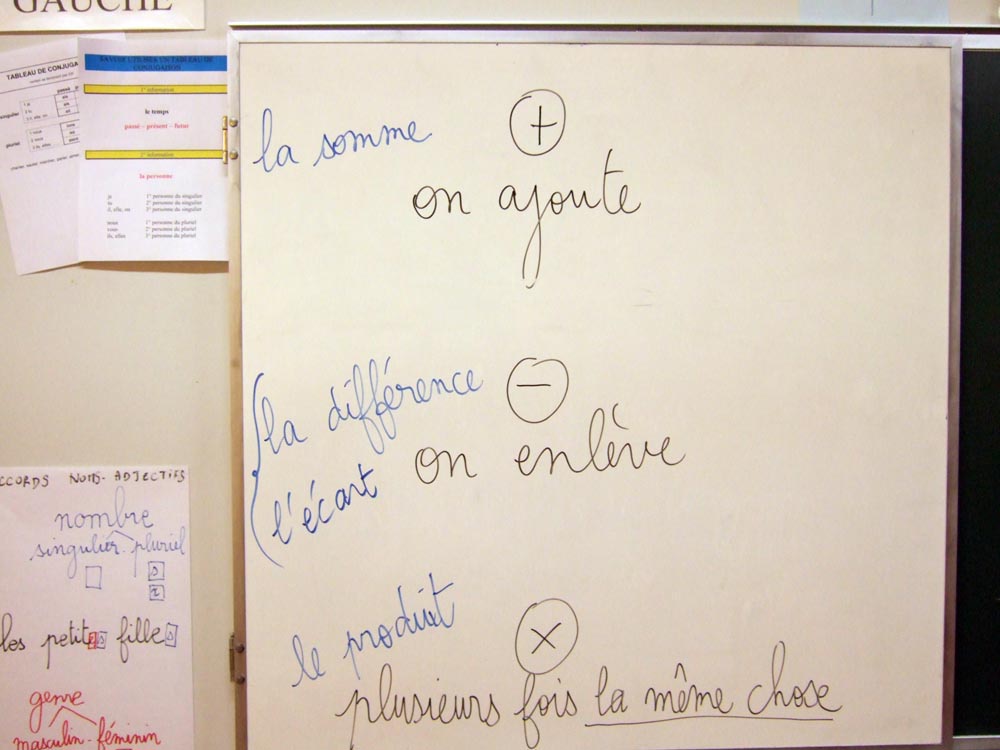 GAUCHE
TABLEAU DE CONJUGA
singulier
pluriel
SAVOIR UTILISER UN TABLEAU DE
CONJUGATION
1° information
le temps
passé – présent – futur
2° information
la personne
je 1° personne du singulier
tu 2° personne du singulier
il, elle, on 3° personne du singulier
nous 1° personne du pluriel
vous 2° personne du pluriel
ils, elles 3° personne du pluriel
la somme +
on ajoute
la différence −
on enlève
l'écart
le produit ×
plusieurs fois la même chose
CCORDS NOMS-ADJECTIFS
nombre
singulier-pluriel
s
x
les petites filles
genre
masculin-féminin